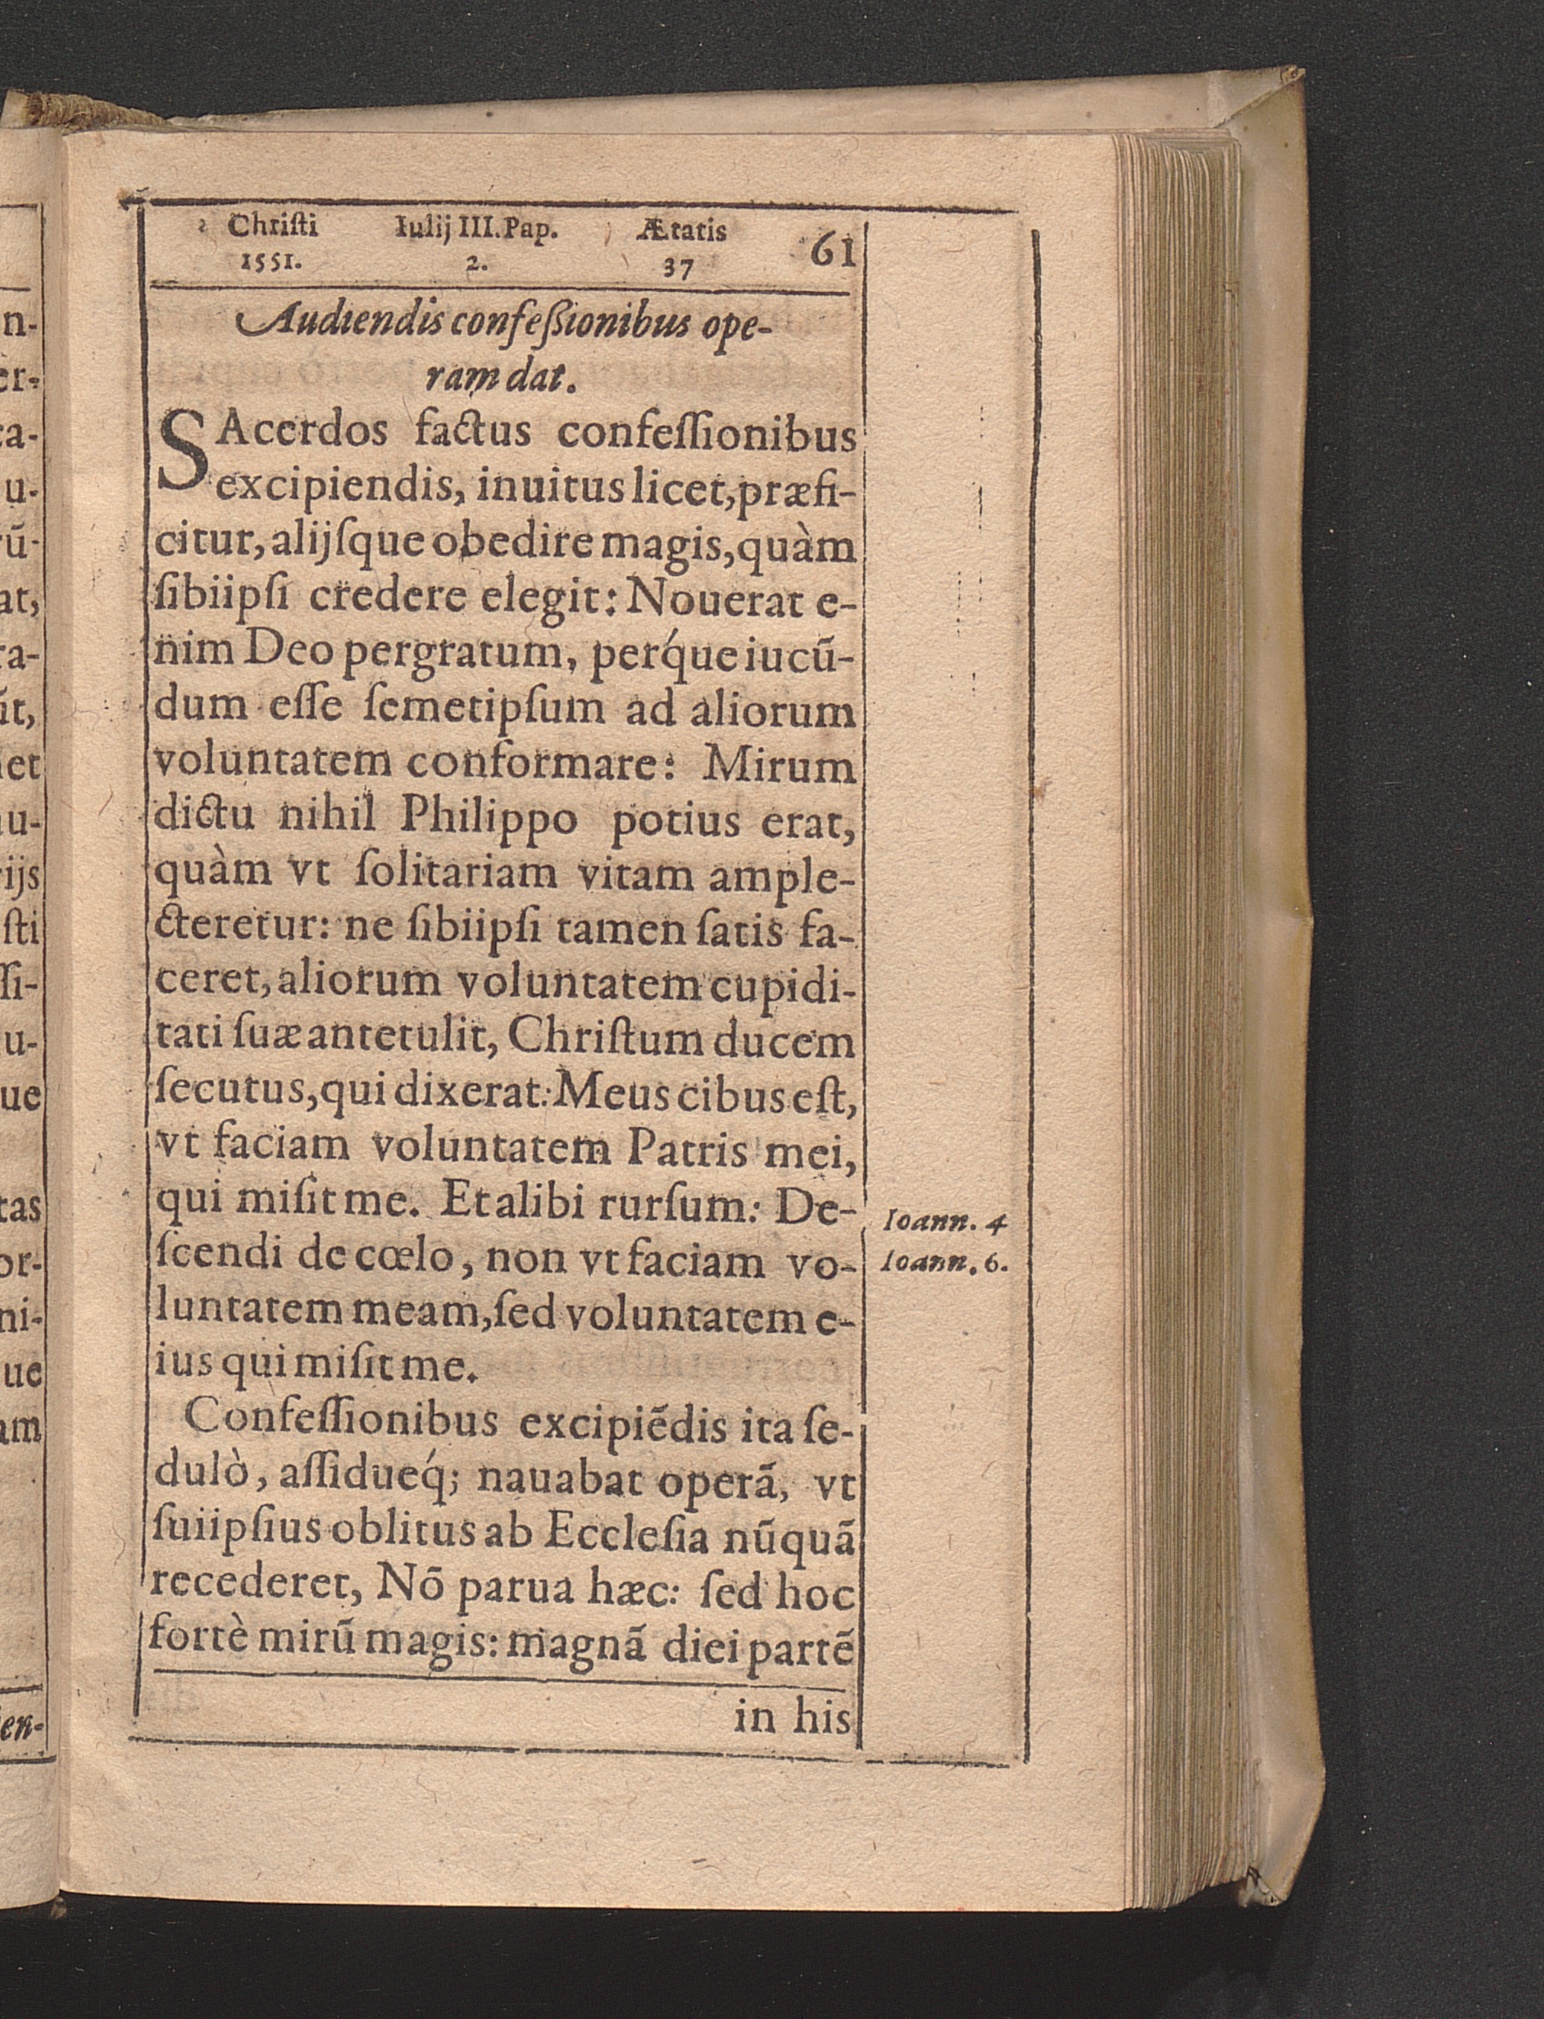 Chriſti Iulij III. Pap. Ætatis 61
1551. 2. 37
Audiendis confeßionibus ope-
ram dat.
SAcerdos factus confeſſionibus
excipiendis, inuitus licet, præfi-
citur, alijſque obedire magis, quàm
ſibiipſi credere elegit: Nouerat e-
nim Deo pergratum, perq́ue iucũ-
dum eſſe ſemetipſum ad aliorum
voluntatem conformare: Mirum
dictu nihil Philippo potius erat,
quàm vt ſolitariam vitam ample-
cteretur: ne ſibiipſi tamen ſatis fa-
ceret, aliorum voluntatem cupidi-
tati ſuæ antetulit, Chriſtum ducem
ſecutus, qui dixerat: Meus cibus eſt,
vt faciam voluntatem Patris mei,
qui miſit me. Et alibi rurſum: De-
Ioann. 4
ſcendi de cœlo, non vt faciam vo-
Ioann. 6.
luntatem meam, ſed voluntatem e-
ius qui miſit me.
Confeſſionibus excipiẽdis ita ſe-
dulò, aſſidueq́; nauabat operã, vt
ſuiipſius oblitus ab Eccleſia nũquã
recederet, Nõ parua hæc: ſed hoc
fortè mirũ magis: magnã diei partẽ
in his